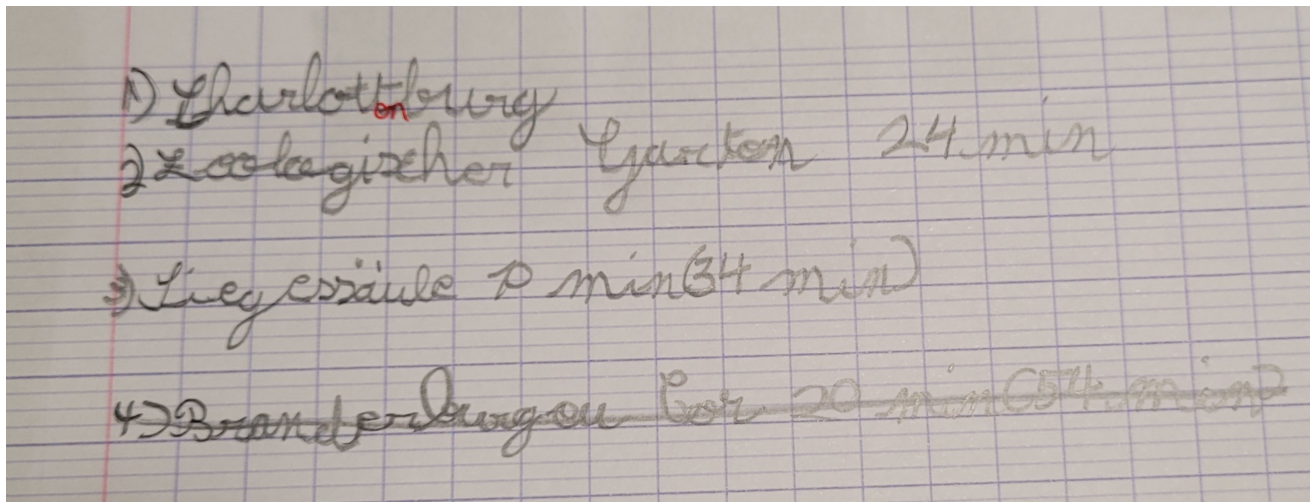 1) Charlottenburg
2 Zoologischer Garten 24 min
3) Siegessäule 10 min (34 min)
4) Brandenburgeu Tor 20 min (54 min)